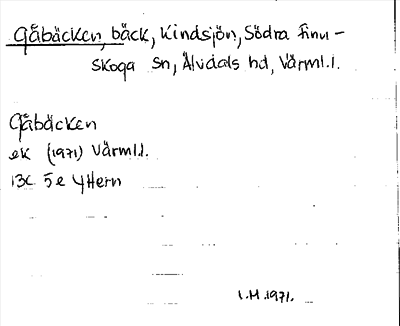 Gåbäcken, bäck, Kindsjön, Södra Finn-
skoga sn, Älvdals hd, Värml.l.
Gåbäcken
ek (1971) Värml.l.
13C 5e YHern
I.H.1971.